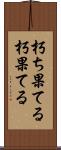 朽ち果てる
朽果てる